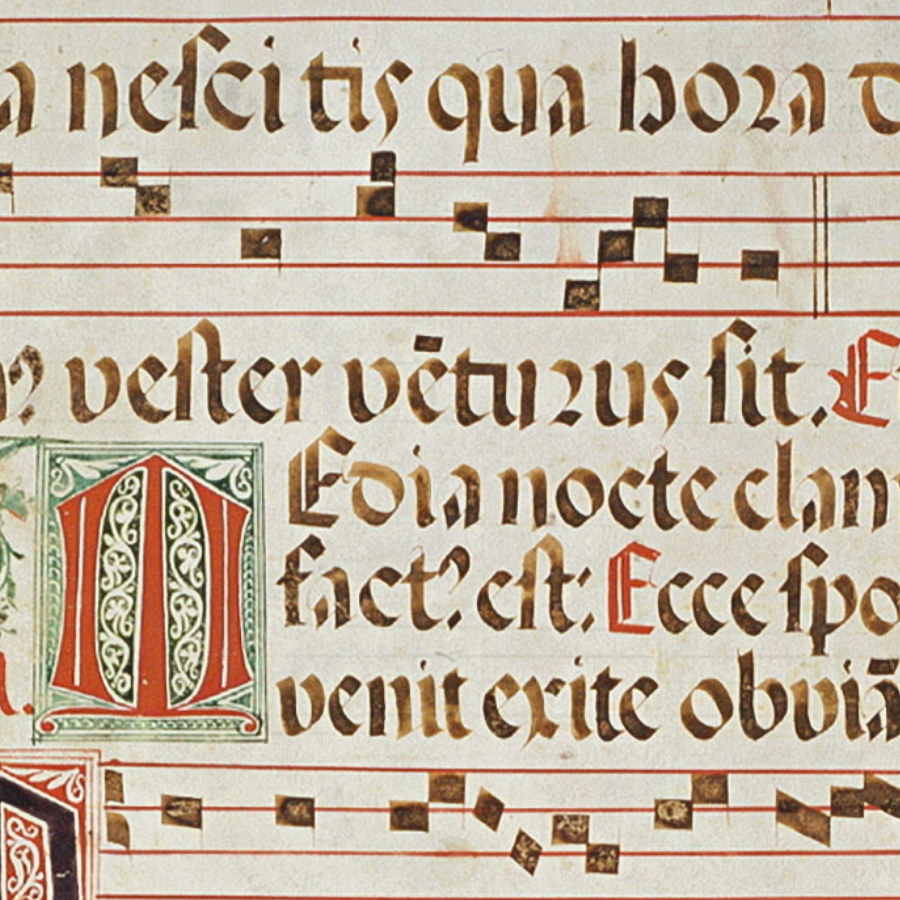 a nescitis qua hora d
vester vēturus sit. E
MEdia nocte clam
fact? est: Ecce spo
venit exite obviā